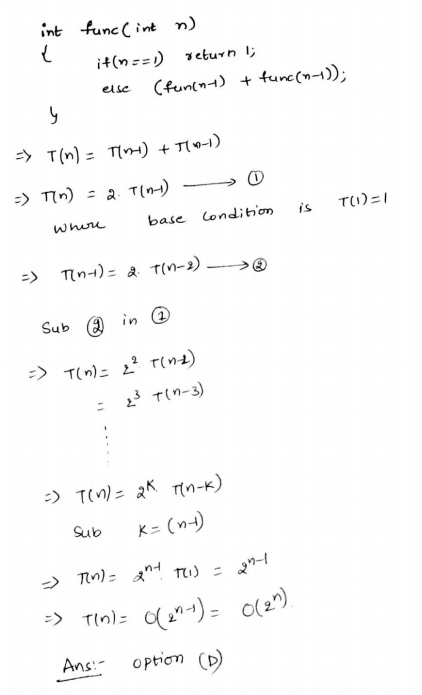 int func(int n)
{
if(n==1) return 1;
else (fun(n-1) + func(n-1));
}
=> T(n) = T(n-1) + T(n-1)
=> T(n) = 2. T(n-1) ⟶ ①
where base condition is T(1)=1
=> T(n-1) = 2. T(n-2) ⟶ ②
Sub ② in ①
=> T(n) = 2² T(n-2)
= 2³ T(n-3)
⋮
=> T(n) = 2ᴷ T(n-K)
Sub K = (n-1)
=> T(n) = 2ⁿ⁻¹ T(1) = 2ⁿ⁻¹
=> T(n) = O(2ⁿ⁻¹) = O(2ⁿ).
Ans:- option (D)